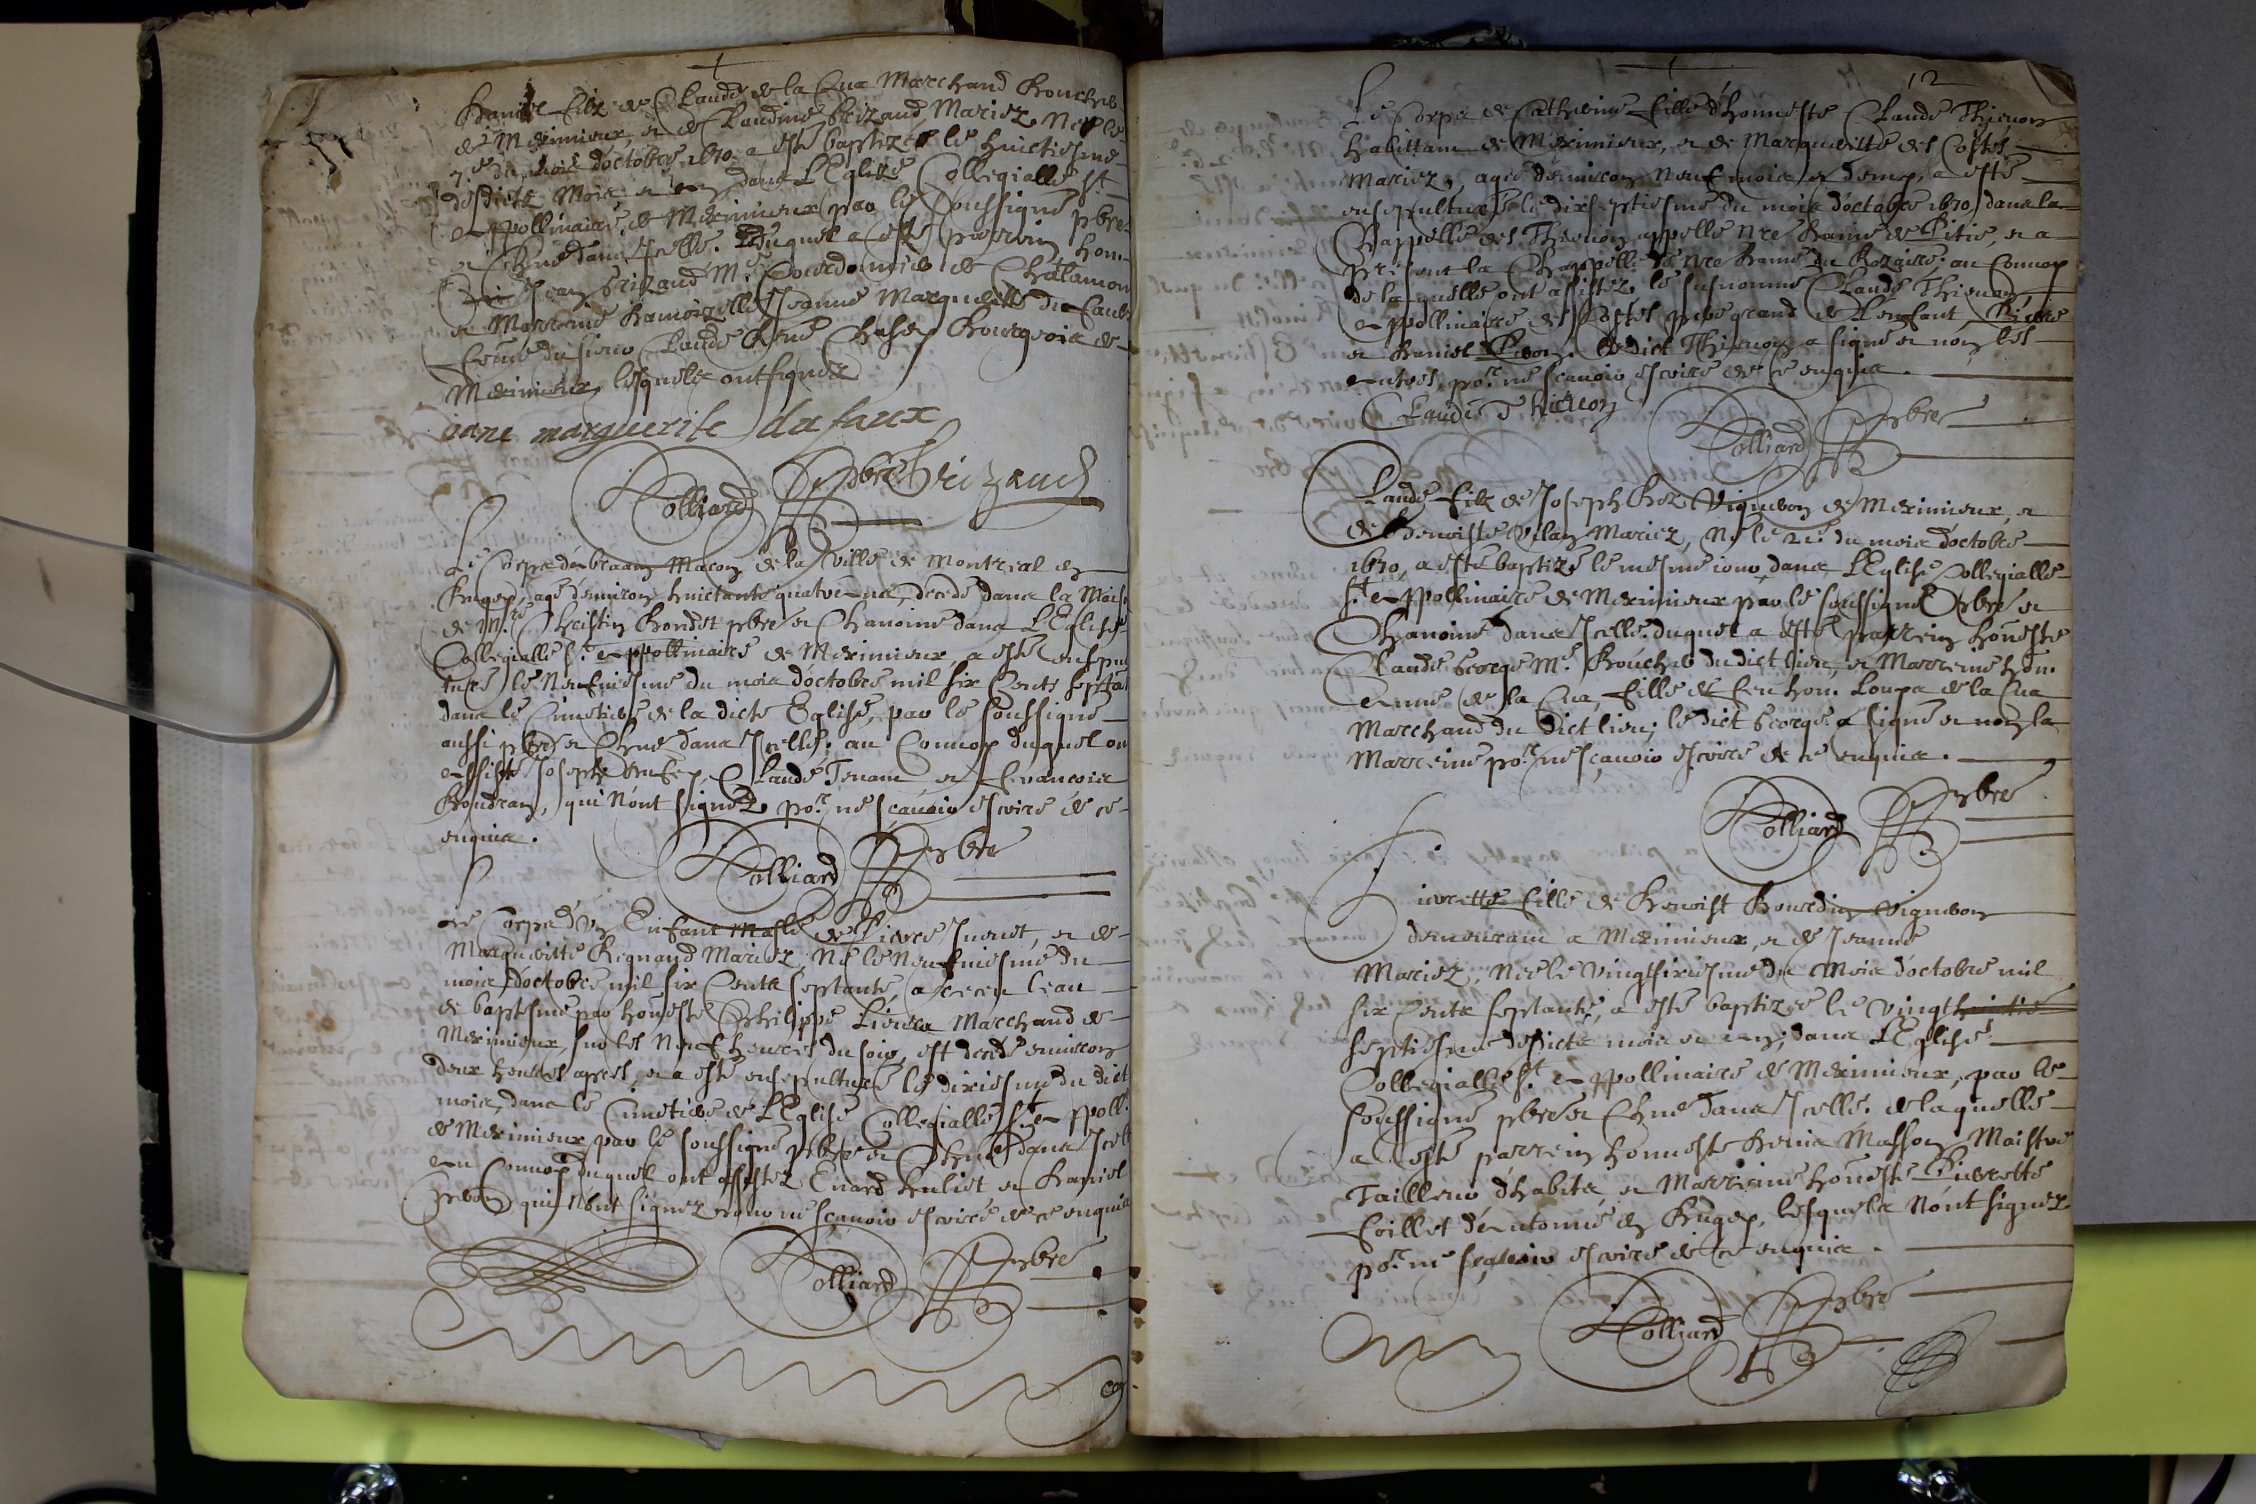 filz de Claude de la Cua Marchand Bouchier
de Meximieux et de Claudine Brizaud Mariez, Né le
7.e du mois d'octobre 1670 a esté baptizé le huictiesme
desdicts Mois et an, dans L'Eglise Collegialle St
Appollinaire de Meximieux par le soussigné pbre
et Chne dans Icelle. Duquel a esté parrein hon.
Brizaud M.e Cordonnier de Chalamon
et Marreine Damoizelle Jeanne Margueritte du Faux
femme du sieur Claude René Bourgeois de
Meximieux, lesquels ont signez
jane marguerite du faux
Colliard Pbre Brizaud
Le Corps d' Macon de la Ville de Montreal en
Bugey, agé d'environ huictante quatre ans, decedé dans la Mais
de M.re Bondet pbre et Chanoine dans L'Eglise
Collegialle S.t Appollinaire de Meximieux, a esté ensepul
turé le Neufviesme du mois d'octobre mil six Cents septan
dans le Cimetiere de la dicte Eglise, par le soussigné
aussi pbre et Chne dans Icelle, au Convoy duquel on
assisté Joseph Claude Tenant et Francois
qui n'ont signez po.r ne sçauoir escrire de ce
enquis.
Colliard Pbre
Le Corps d'Un Enfant Masle de Pierre et de
Marguerite Reynaud Mariez, Né le Neufviesme du
mois d'octobre mil six Cents septante, a receu l'eau
de baptesme par honneste Philippe Marchand de
Meximieux, sur les Neuf heures du soir, est decedé environ
deux heures apres, et a esté ensepulturé le dixiesme du dict
mois, dans le Cimetiere de L'Eglise Collegialle S.t Appoll.
de Meximieux par le soussigné pbre et Chne dans Icell
au Convoy duquel ont assistez et Daniel
qui n'ont signez pour ne sçauoir escrire de ce enquis
Colliard Pbre
12
Le Corps de Catherine fille d'honneste Claude Thienon
habittant de Meximieux, et de Marguerite des Costes
Mariez, agée d'environ Neuf mois et demy, a esté
ensepulturée le dixseptiesme du mois d'octobre 1670, dans la
Chappelle des Thienon appellé Nre Dame de Pitié, et a
present la Chappelle de Nre Dame du Rozaire, au Convoy
de laquelle ont assistez le susnommé Claude Thienon
Appollinaire des Costes pere grand de L'enfant, Pierre
et Daniel Ledict Thienon a signé et non les
autres po.r ne sçauoir escrire de ce enquis.
Claude Thienon
Colliard Pbre
Claude filz de Joseph Roz Vigneron de Meximieux, et
de Benoiste Vilan Mariez, Né le 21.e du mois d'octobre
1670, a esté baptizé le mesme iour, dans L'Eglise Collegialle
S.t Appollinaire de Meximieux par le soussigné Pbre et
Chanoine dans Icelle. duquel a esté parrein honneste
Claude George M.e Bouchier du dict lieu, et Marreine hon.
Anne de la Cua, fille de feu hon. Loups de la Cua
Marchand du Dict lieu; le dict George a signé et non la
Marreine po.r ne sçauoir escrire de ce enquise.
Colliard Pbre
Pierrette fille de Benoist Bourdin Vigneron
demeurant a Meximieux, et de Jeanne
Mariez, Née le Vingtsixiesme du Mois d'octobre mil
six Cents septante, a esté baptizée le Vingt huictie
septiesme desdicts mois et an, dans L'Eglise
Collegialle S.t Appollinaire de Meximieux, par le
soussigné pbre et Chne dans Icelle. de laquelle
a esté parrein honneste Denis Masson Maistre
Tailleur d'habits, et Marreine honneste Pierrette
en Bugey, lesquels n'ont signez
po.r ne sçauoir escrire de ce enquis.
Colliard Pbre